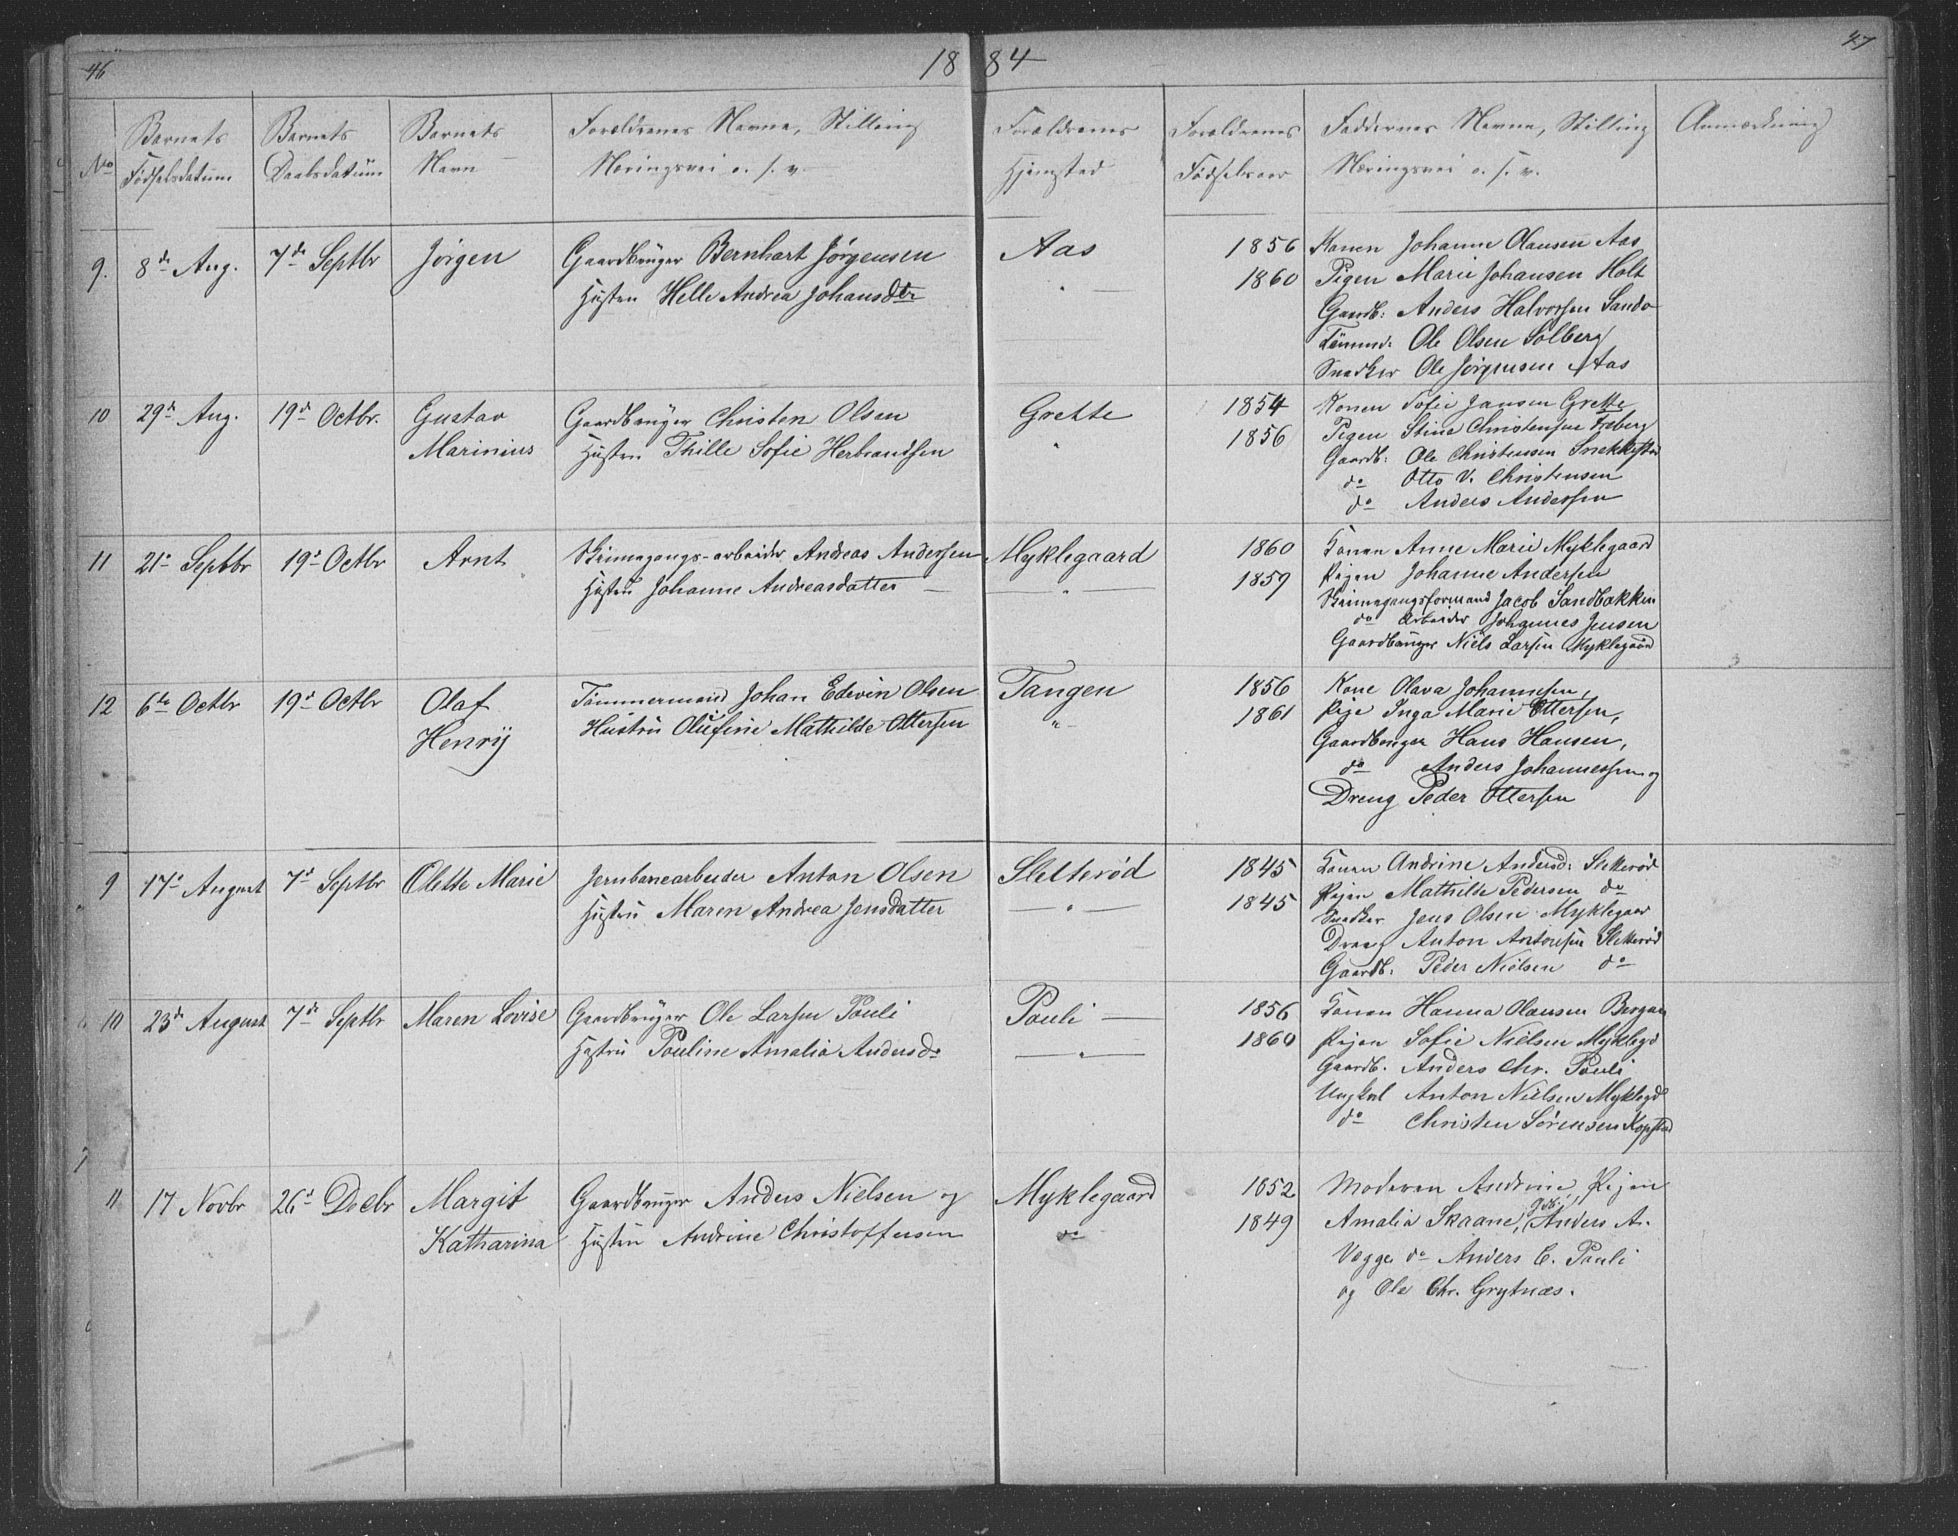 46
18 84
47
No
Barnets Fødselsdatum
Barnets Daabsdatum
Barnets Navn
Forældrenes Navne, Stilling
Næringsvei o. s. v.
Forældrenes Hjemsted
Forældrenes Fødselsaar
Faddernes Navne, Stilling
Næringsvei o. s. v.
Anmærkning
9. 8de Aug. 7de Septbr Jørgen
Gaardbruger Bernhart Jørgensen Aas 1856
Hustru Helle Andrea Johansdtr " 1860
Konen Johanne Olausen Aas
Pigen Marie Johansen Holt
Gaardb: Anders Halvorsen Sando
Tømmr. Ole Olsen Solberg
Snedker Ole Jørgensen Aas
10 29de Aug. 19de Octbr. Gustav Marinius
Gaardbruger Christen Olsen Grette 1854
Hustru Thille Sofie Herbrandsen " 1856
Konen Sofie Jansen Grette
Pigen Stina Christensen
Gaardb: Ole Christensen Snekkestad
do Otto V. Christensen
do Anders Andersen
11 21. Septbr 19. Octbr Arnt
Skinnegangs-arbeider Andreas Andersen Myklegaard 1860
Hustru Johanne Andreasdatter — " — 1859
Konen Anne Marie Myklegaard
Pigen Johanne Andersen
Skinnegangsformand Jacob Sandbakken
do Arbeider Johannes Jensen
Gaardbruger Niels Larsen Myklegaard
12 6te Octbr 19. Octbr Olaf Henrÿ
Tømmermand Johan Edevin Olsen Tangen 1856
Hustru Olufine Mathilde Ottersen " 1861
Kone Olava Johannesen,
Pige Inga Marie Ottersen,
Gaardbruger Hans Hansen,
do Anders Johannessen og
Dreng Peder Ottersen
9 17. August 7. Septbr Olette Marie
Jernbanearbeider Anton Olsen Sletterød 1845
Hustru Maren Andrea Jensdatter — " — 1845
Konen Andrine Andersd: Sletterød
Pigen Mathilde Pedersen do
Snedker Jens Olsen Myklegaar
Dreng Anton Antonsen Sletterød
Gaardb. Peder Nielsen do
10 23de August 7de Septbr Maren Lovise
Gaardbruger Ole Larsen Pauli Pauli — 1856
Hustru Pauline Amalia Andersd. — " — 1860
Konen Hanna Olausen Bergan
Pigen Sofie Nielsen Myklegd
Gaardb. Anders Chr. Pauli
Ungkal Anton Nielsen Myklegd
do Christen Sørensen Kopstad
11 17 Novbr 26. Decbr Margit Katharina
Gaardbruger Anders Nielsen og Myklegaard 1852
Hustru Andrine Christoffersen do 1849
Moderen Andrine, Pigen
Amalia Skaane, Gdb. Anders A.
Vegge do Anders C. Pauli
og Ole Chr. Grytnæs.